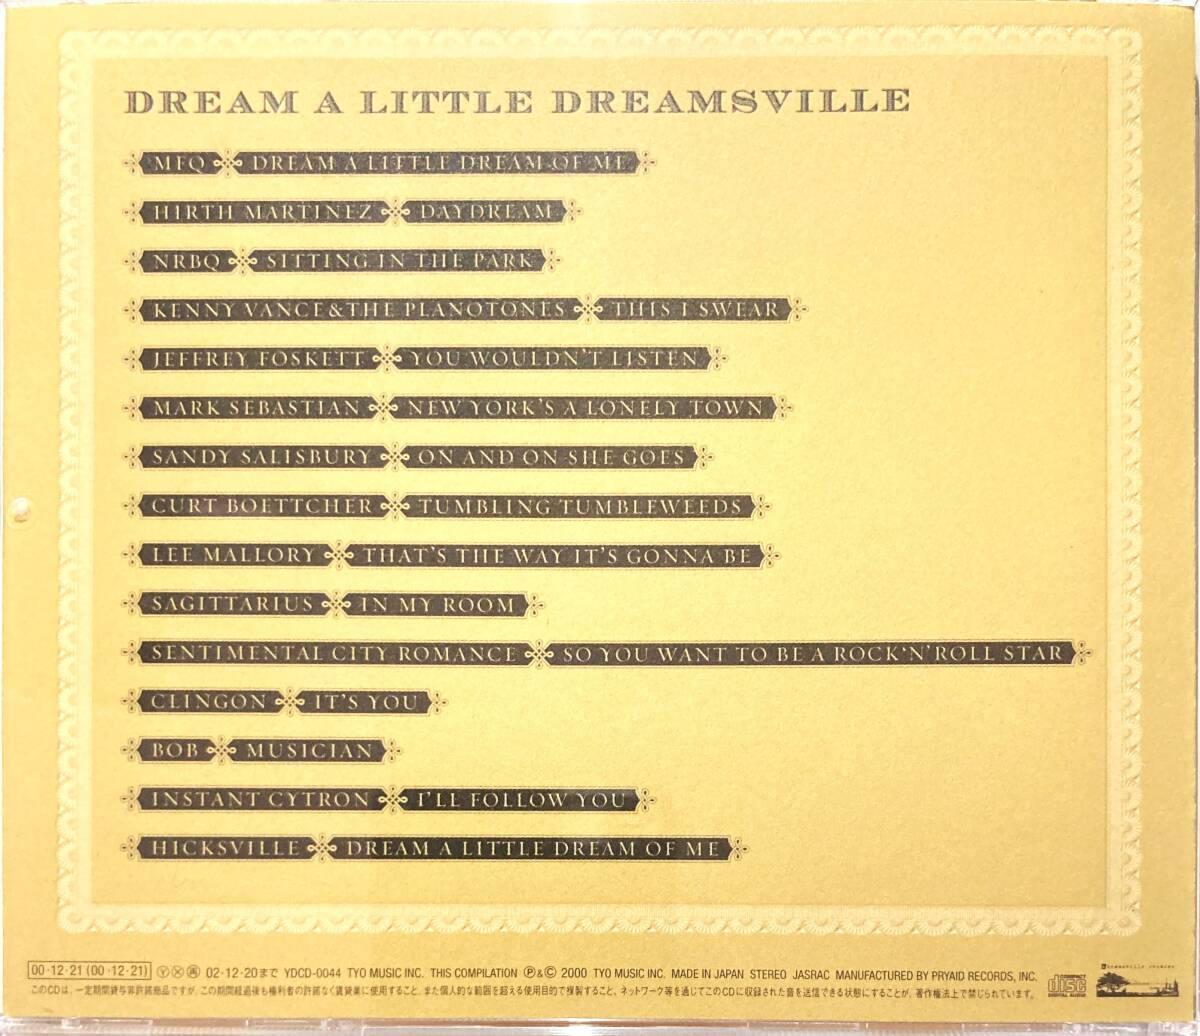 DREAM A LITTLE DREAMSVILLE
MFQ DREAM A LITTLE DREAM OF ME
HIRTH MARTINEZ DAYDREAM
NRBQ SITTING IN THE PARK
KENNY VANCE & THE PLANOTONES THIS I SWEAR
JEFFREY FOSKETT YOU WOULDN'T LISTEN
MARK SEBASTIAN NEW YORK'S A LONELY TOWN
SANDY SALISBURY ON AND ON SHE GOES
CURT BOETTCHER TUMBLING TUMBLEWEEDS
LEE MALLORY THAT'S THE WAY IT'S GONNA BE
SAGITTARIUS IN MY ROOM
SENTIMENTAL CITY ROMANCE SO YOU WANT TO BE A ROCK‘N’ROLL STAR
CLINGON IT'S YOU
BOB MUSICIAN
INSTANT CYTRON I'LL FOLLOW YOU
HICKSVILLE DREAM A LITTLE DREAM OF ME
00·12·21 (00·12·21) Ⓨ Ⓧ 再 02·12·20まで YDCD-0044 TYO MUSIC INC. THIS COMPILATION Ⓟ&© 2000 TYO MUSIC INC. MADE IN JAPAN STEREO JASRAC MANUFACTURED BY PRYAID RECORDS, INC.
このCDは、一定期間貸与非許諾商品ですが、この期間経過後も権利者の許諾なく賃貸業に使用すること、また個人的な範囲を超える使用目的で複製すること、ネットワーク等を通じてこのCDに収録された音を送信できる状態にすることが、著作権法上で禁じられています。
COMPACT disc DIGITAL AUDIO
dreamsville records